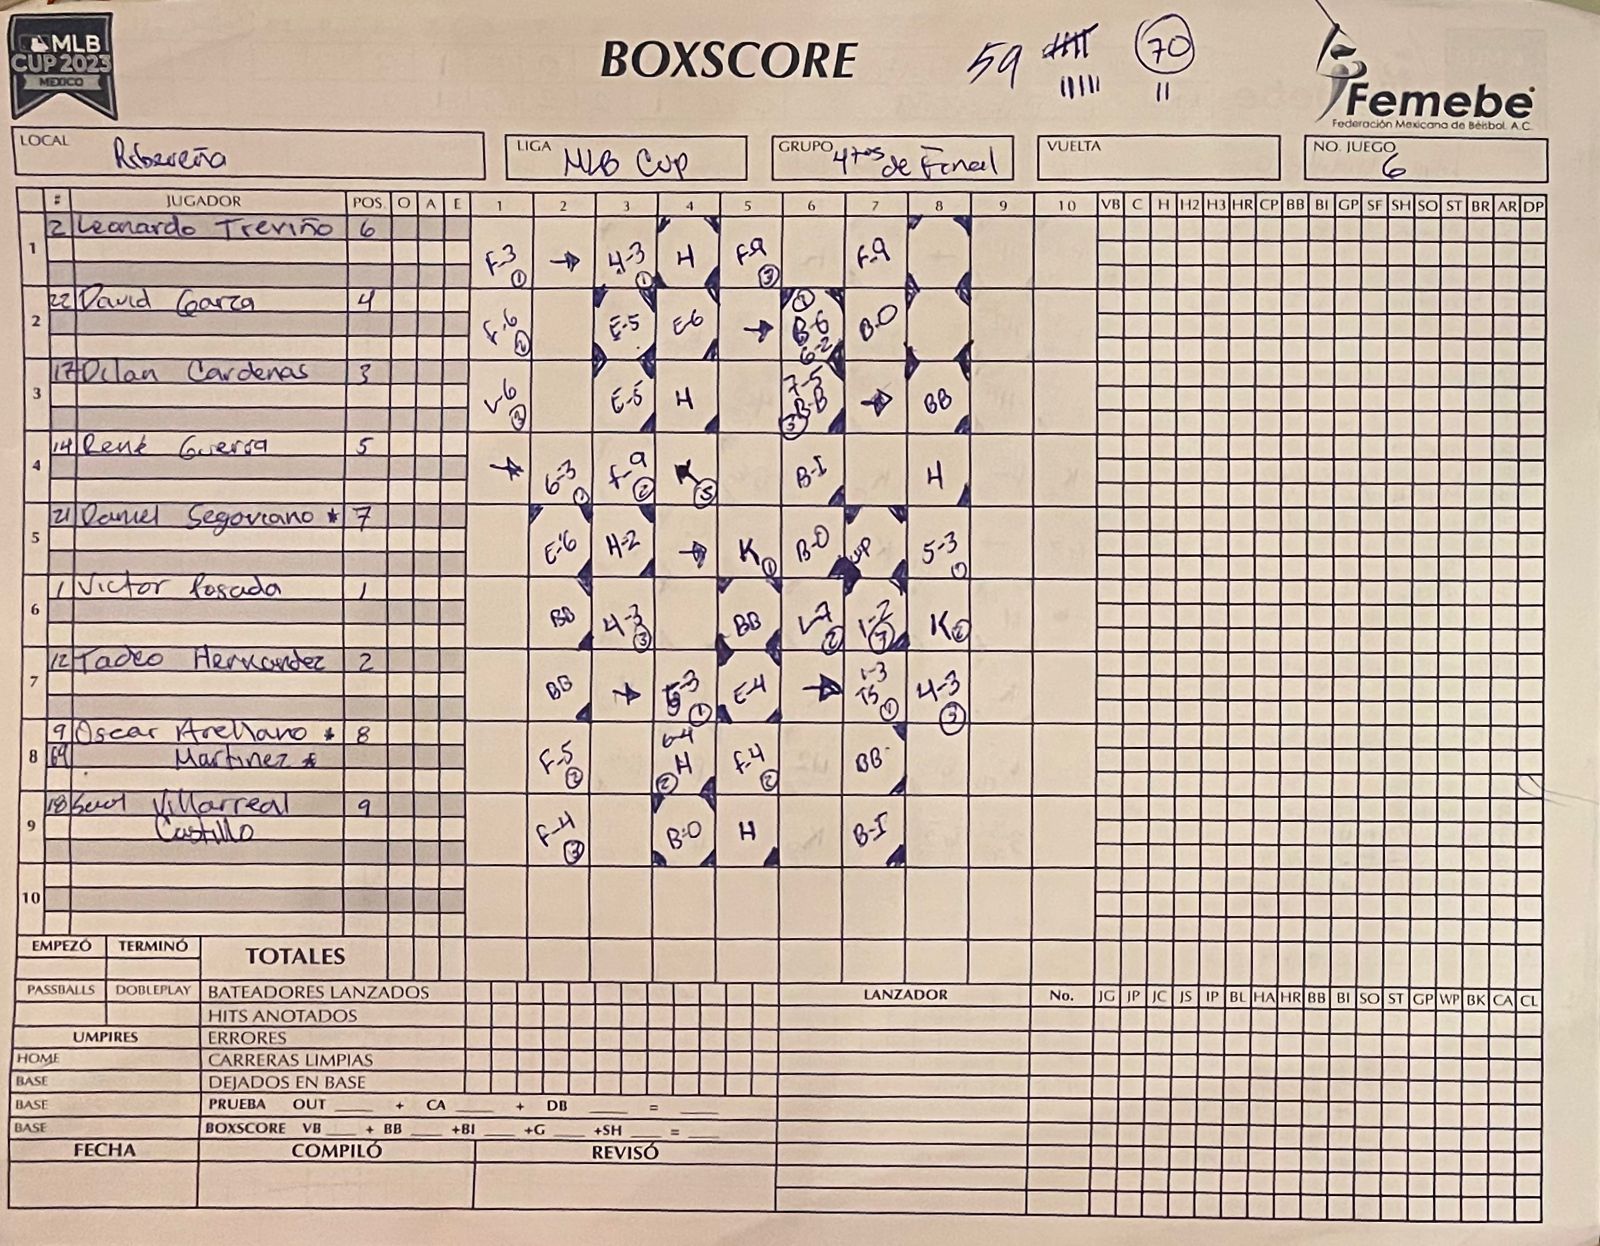 MLB
CUP 2023
MEXICO
BOXSCORE
59
70
Femebe
Federación Mexicana de Béisbol, A.C.
LOCAL Ribereña
LIGA MLB Cup
GRUPO 4tos de Final
VUELTA
NO. JUEGO 6
# JUGADOR POS. O A E 1 2 3 4 5 6 7 8 9 10 VB C H H2 H3 HR CP BB BI GP SF SH SO ST BR AR DP
1 2 Leonardo Treviño 6 F-3 1 4-3 1 H F-9 3 F-9
2 22 David Garza 4 F-6 2 E-5 E-6 1 B-6 6-2 B-O
3 17 Dilan Cardenas 3 L-6 3 E-5 H 7-5 B-B 3 BB
4 14 René Guerra 5 6-3 1 F-9 2 K 3 B-I H
5 21 Daniel Segoviano * 7 E-6 H-2 K 1 B-O 5-3 1
6 1 Victor Posada 1 BB 4-3 3 BB L-7 2 1-2 K 2
7 12 Tadeo Hernandez 2 BB 3 1 E-4 1-3 1 4-3 3
8 9 Oscar Arellano * 8 F-5 2 6-4 H 2 F-4 2 BB
Martinez *
9 18 Villarreal 9 F-4 3 B-O H B-I
Castillo
10
EMPEZÓ TERMINÓ TOTALES
PASSBALLS DOBLEPLAY BATEADORES LANZADOS LANZADOR No. JG JP JC JS IP BL HA HR BB BI SO ST GP WP BK CA CL
HITS ANOTADOS
UMPIRES ERRORES
HOME CARRERAS LIMPIAS
BASE DEJADOS EN BASE
BASE PRUEBA OUT ____ + CA ____ + DB ____ = ____
BASE BOXSCORE VB ___ + BB ___ +BI ___ +G ___ +SH ___ = ___
FECHA COMPILÓ REVISÓ